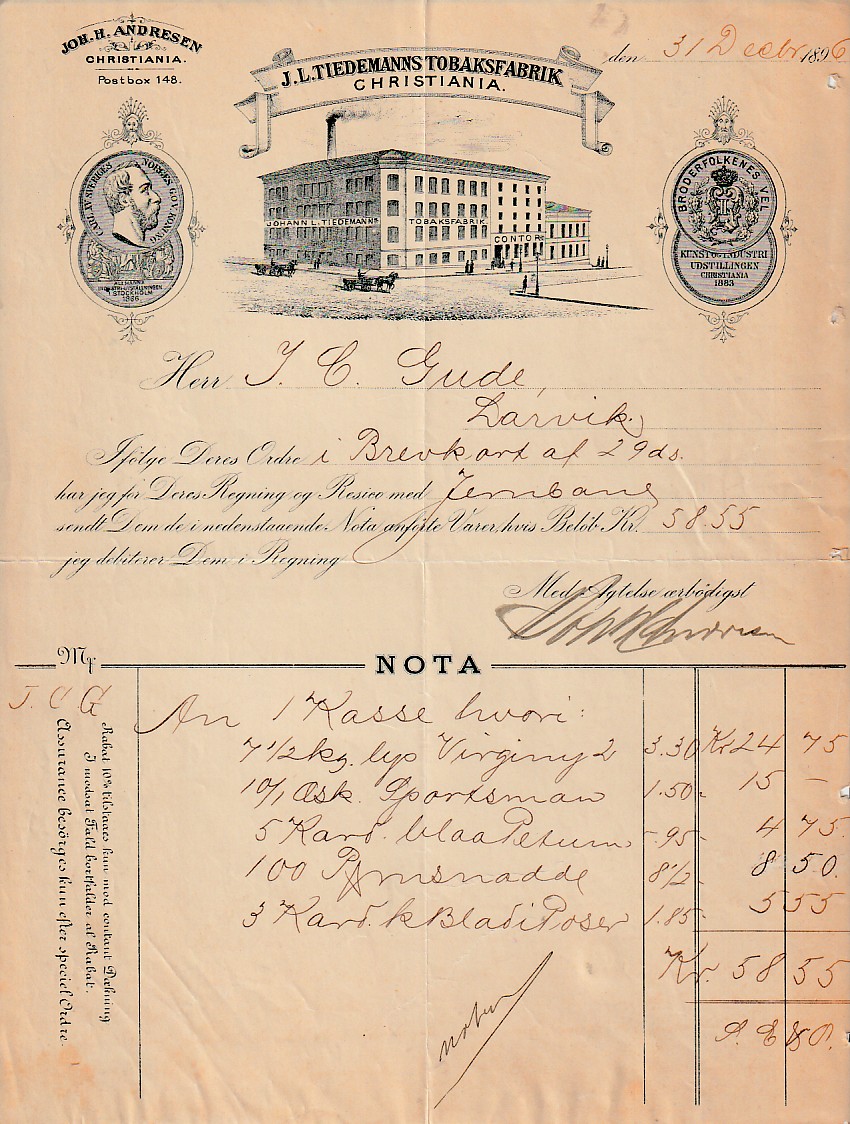 JOH. H. ANDRESEN
CHRISTIANIA.
Postbox 148.
J. L. TIEDEMANNS TOBAKSFABRIK
CHRISTIANIA.
den 31 Decbr. 1896
CARL IV SVERIGES NORGES GOT. KONUNG
STOCKHOLM
1866
JOHANN L. TIEDEMANNS TOBAKSFABRIK.
CONTOR
BRODERFOLKENES VEL
KUNST OG INDUSTRI
UDSTILLINGEN
CHRISTIANIA
1883
Herr J. C. Gude,
Larvik,
Ifölge Deres Ordre i Brevkort af 29 ds.
har jeg for Deres Regning og Resico med Jernbane
sendt Dem de i nedenstaaende Nota anförte Varer, hvis Belöb Kr. 58.55
jeg debiterer Dem i Regning
Med Agtelse ærbödigst
Joh H Andresen
Mf NOTA
J. C. G. An 1 Kasse hvori:
7 1/2 kg. lys Virginy 2 3.30 Kr 24 75
10/1 Æsk. Sportsman 1.50. 15 —
5 Kard. blaa Petum -.95- 4 75.
100 8 1/2 - 8 50.
3 Kard. k Blad i Poser 1.85- 5 55
Kr. 58 55
Rabat 10% tilstaaes kun mod contant Dækning
I modsat Fald bortfalder al Rabat.
Assurance besörges kun efter speciel Ordre.